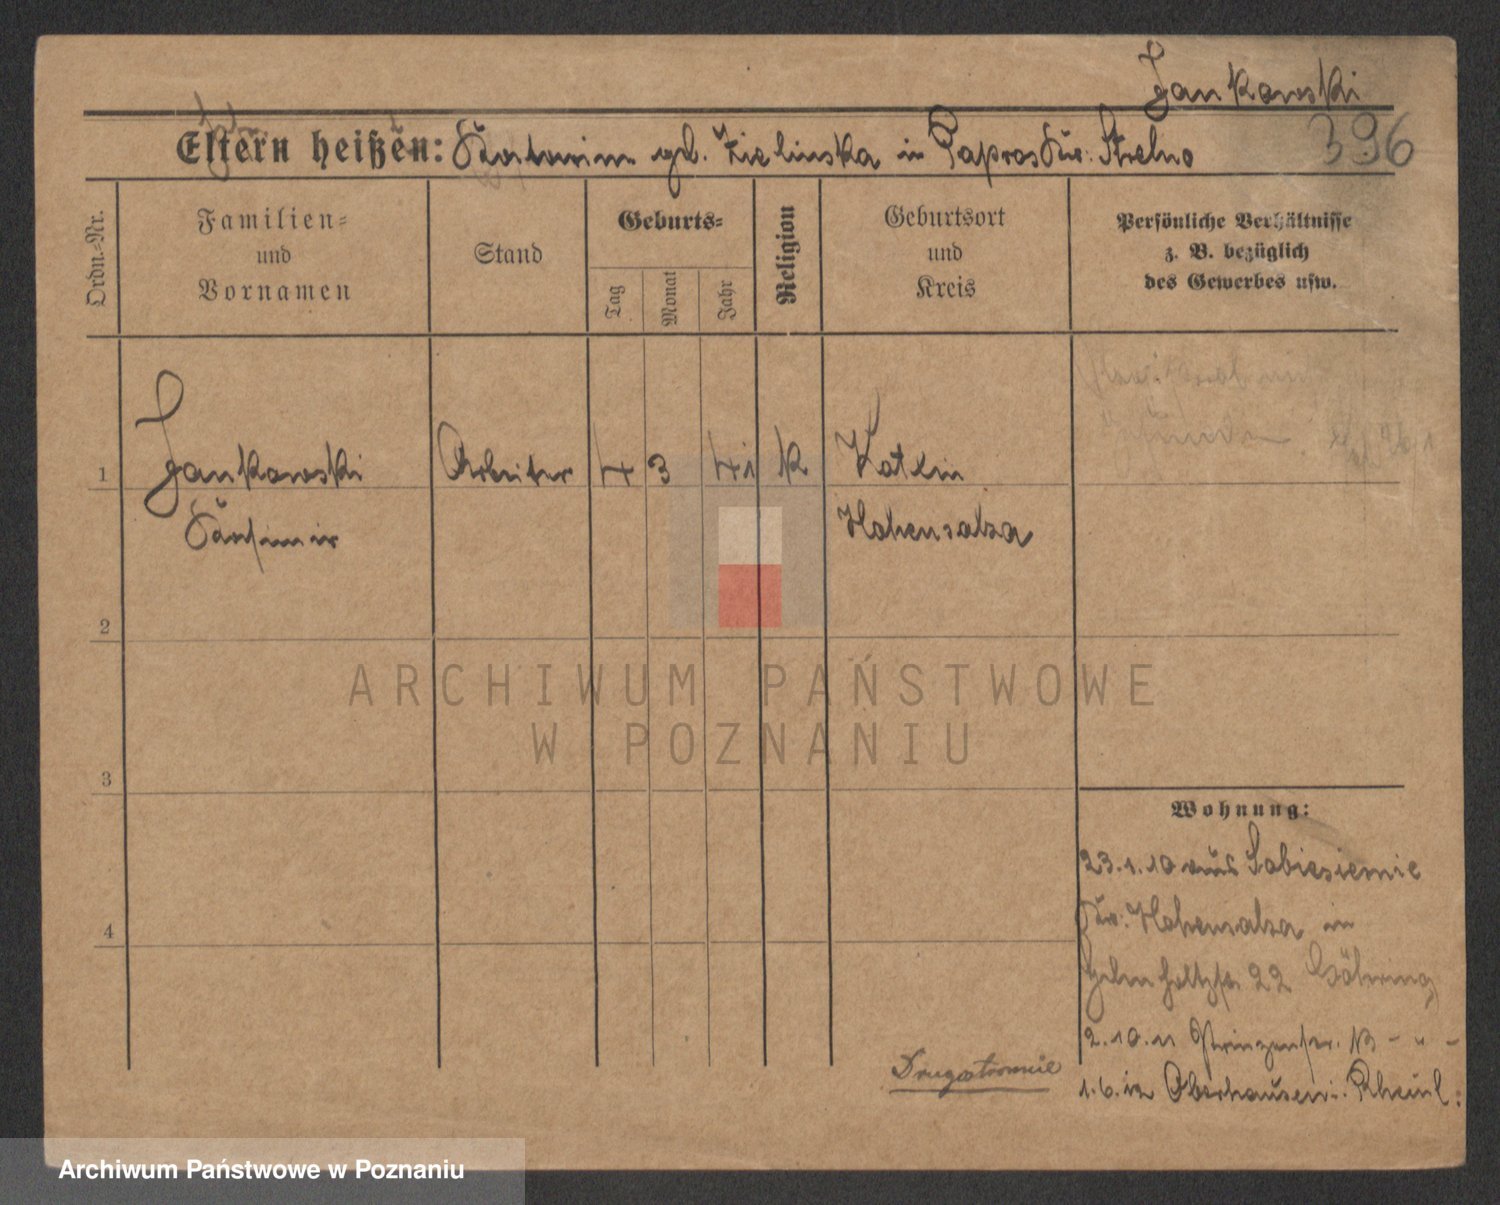 Jankowski
396
Eltern heißen: Katarina gb. Zielinska in Papros Kr: Strelno
Ordn.-Nr.
Familien-
und
Vornamen
Stand
Geburts-
Tag
Monat
Jahr
Religion
Geburtsort
und
Kreis
Persönliche Verhältnisse
z. B. bezüglich
des Gewerbes usw.
1 Jankowski Arbeiter 4 3 41 k Kotlin
Kasimir Hohensalza
2
3
4
Wohnung:
23.1.10 aus Sobiesiernie
Kr: Hohensalza in
22 Göhring
2.10.11 Prinzenstr. 13 - " -
1.6.12 Oberhausen i. Rheinl:
Drugostronnie
ARCHIWUM PAŃSTWOWE
W POZNANIU
Archiwum Państwowe w Poznaniu